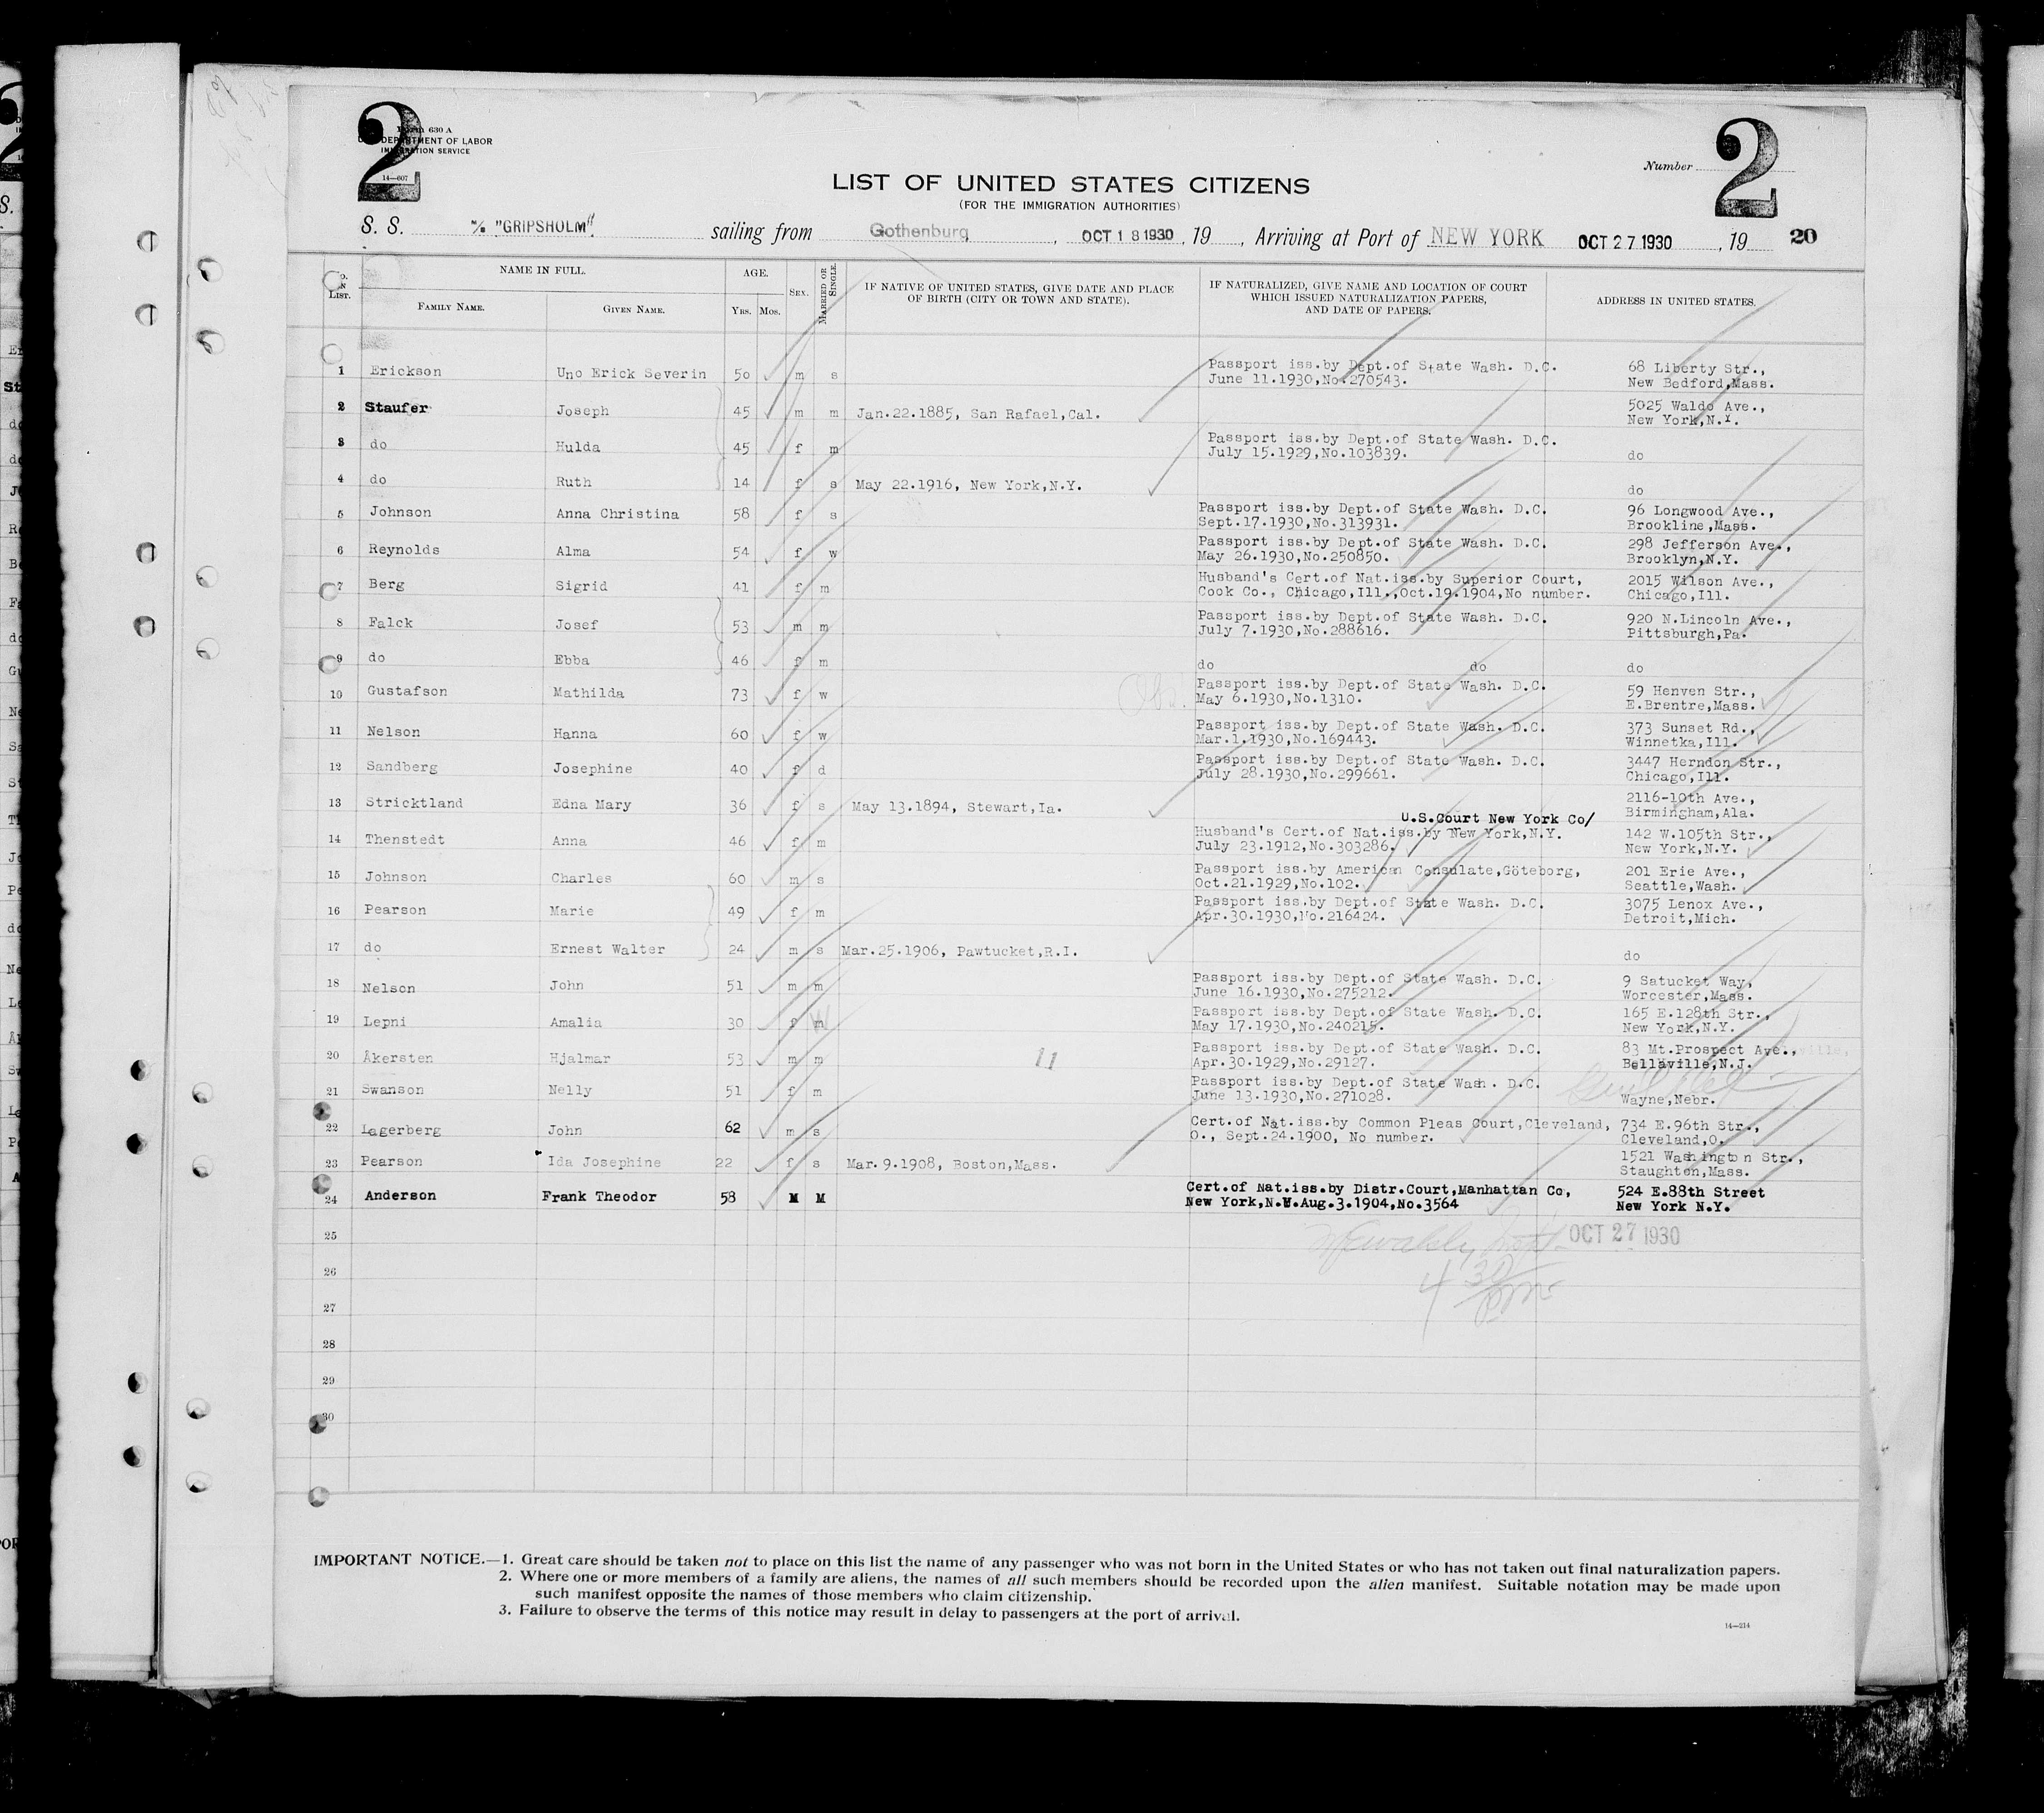 2
2
Form 630 A
DEPARTMENT OF LABOR
IMMIGRATION SERVICE
14—607
Number
LIST OF UNITED STATES CITIZENS
(FOR THE IMMIGRATION AUTHORITIES)
S. S. M/S "GRIPSHOLM" sailing from Gothenburg, OCT 18 1930, 19 , Arriving at Port of NEW YORK OCT 27 1930, 19 20
No. ON LIST. NAME IN FULL. AGE. SEX. MARRIED OR SINGLE. IF NATIVE OF UNITED STATES, GIVE DATE AND PLACE OF BIRTH (CITY OR TOWN AND STATE). IF NATURALIZED, GIVE NAME AND LOCATION OF COURT WHICH ISSUED NATURALIZATION PAPERS, AND DATE OF PAPERS. ADDRESS IN UNITED STATES.
FAMILY NAME. GIVEN NAME. YRS. MOS.
1 Erickson Uno Erick Severin 50 m s Passport iss.by Dept.of State Wash. D.C. 68 Liberty Str.,
June 11.1930,No.270543. New Bedford,Mass.
2 Staufer Joseph 45 m m Jan.22.1885, San Rafael,Cal. 5025 Waldo Ave.,
New York,N.Y.
3 do Hulda 45 f m Passport iss.by Dept.of State Wash. D.C.
July 15.1929,No.103839. do
4 do Ruth 14 f s May 22.1916, New York,N.Y. do
5 Johnson Anna Christina 58 f s Passport iss.by Dept.of State Wash. D.C. 96 Longwood Ave.,
Sept.17.1930,No.313931. Brookline,Mass.
6 Reynolds Alma 54 f w Passport iss.by Dept.of State Wash. D.C. 298 Jefferson Ave.,
May 26.1930,No.250850. Brooklyn,N.Y.
7 Berg Sigrid 41 f m Husband's Cert.of Nat.iss.by Superior Court, 2015 Wilson Ave.,
Cook Co., Chicago,Ill.,Oct.19.1904,No number. Chicago,Ill.
8 Falck Josef 53 m m Passport iss.by Dept.of State Wash. D.C. 920 N.Lincoln Ave.,
July 7.1930,No.288616. Pittsburgh,Pa.
9 do Ebba 46 f m do do do
10 Gustafson Mathilda 73 f w Passport iss.by Dept.of State Wash. D.C. 59 Henven Str.,
May 6.1930,No.1310. E.Brentre,Mass.
11 Nelson Hanna 60 f w Passport iss.by Dept.of State Wash. D.C. 373 Sunset Rd.,
Mar.1.1930,No.169443. Winnetka,Ill.
12 Sandberg Josephine 40 f d Passport iss.by Dept.of State Wash. D.C. 3447 Herndon Str.,
July 28.1930,No.299661. Chicago,Ill.
13 Stricktland Edna Mary 36 f s May 13.1894, Stewart,Ia. 2116-10th Ave.,
Birmingham,Ala.
U.S.Court New York Co/
14 Thenstedt Anna 46 f m Husband's Cert.of Nat.iss.by New York,N.Y. 142 W.105th Str.,
July 23.1912,No.303286. New York,N.Y.
15 Johnson Charles 60 m s Passport iss.by American Consulate,Göteborg, 201 Erie Ave.,
Oct.21.1929,No.102. Seattle,Wash.
16 Pearson Marie 49 f m Passport iss.by Dept.of State Wash. D.C. 3075 Lenox Ave.,
Apr.30.1930,No.216424. Detroit,Mich.
17 do Ernest Walter 24 m s Mar.25.1906, Pawtucket,R.I. do
18 Nelson John 51 m m Passport iss.by Dept.of State Wash. D.C. 9 Satucket Way,
June 16.1930,No.275212. Worcester,Mass.
19 Lepni Amalia 30 f m W Passport iss.by Dept.of State Wash. D.C. 165 E.128th Str.,
May 17.1930,No.240215. New York,N.Y.
20 Åkersten Hjalmar 53 m m 11 Passport iss.by Dept.of State Wash. D.C. 83 Mt.Prospect Ave.,
Apr.30.1929,No.29127. Bellaville,N.J.
21 Swanson Nelly 51 f m Passport iss.by Dept.of State Wash. D.C.
June 13.1930,No.271028. Wayne,Nebr.
22 Lagerberg John 62 m s Cert.of Nat.iss.by Common Pleas Court,Cleveland, 734 E.96th Str.,
O., Sept.24.1900, No number. Cleveland,O.
23 Pearson Ida Josephine 22 f s Mar.9.1908, Boston,Mass. 1521 Washington Str.,
Staughton,Mass.
24 Anderson Frank Theodor 58 M M Cert.of Nat.iss.by Distr.Court,Manhattan Co, 524 E.88th Street
New York,N.Y.Aug.3.1904,No.3564 New York N.Y.
25 OCT 27 1930
26 4 30 pm
27
28
29
30
IMPORTANT NOTICE.—1. Great care should be taken not to place on this list the name of any passenger who was not born in the United States or who has not taken out final naturalization papers.
2. Where one or more members of a family are aliens, the names of all such members should be recorded upon the alien manifest. Suitable notation may be made upon
such manifest opposite the names of those members who claim citizenship.
3. Failure to observe the terms of this notice may result in delay to passengers at the port of arrival.
14—214